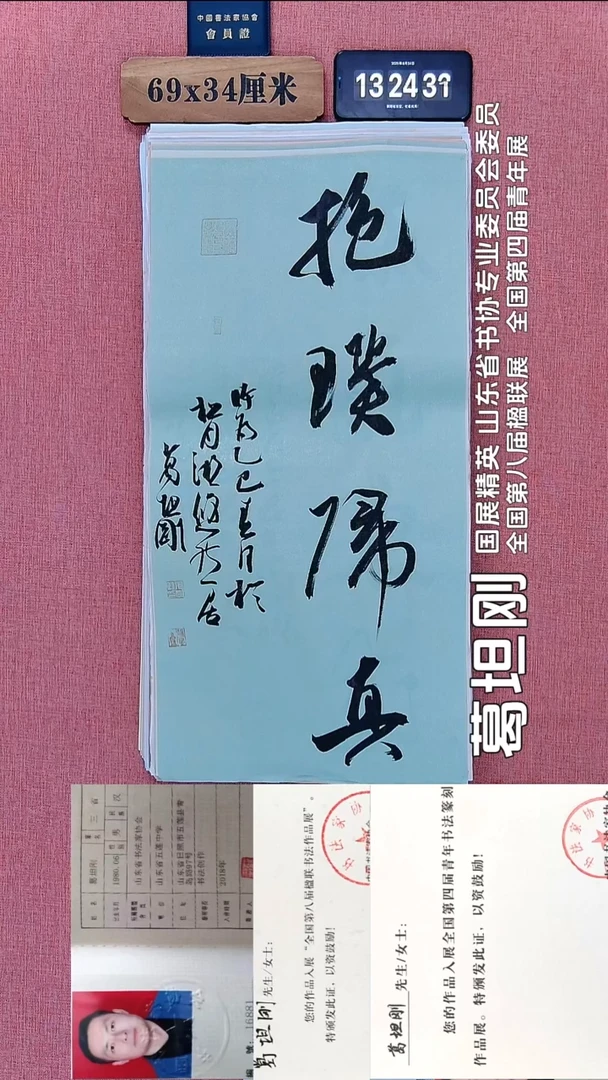 中國書法家協會
會員證
69x34厘米
13 24 31
抱璞歸真
乙巳春月於
葛坦剛
国展精英 山东省书协专业委员会委员
全国第八届楹联展 全国第四届青年展
葛坦刚
葛坦刚
山东省书法家协会
山东省五莲中学
2018年
16881
葛坦刚 先生/女士：
您的作品入展“全国第八届楹联书法作品展”。
特颁发此证，以资鼓励！
葛坦刚 先生/女士：
您的作品入展全国第四届青年书法篆刻
作品展。特颁发此证，以资鼓励！